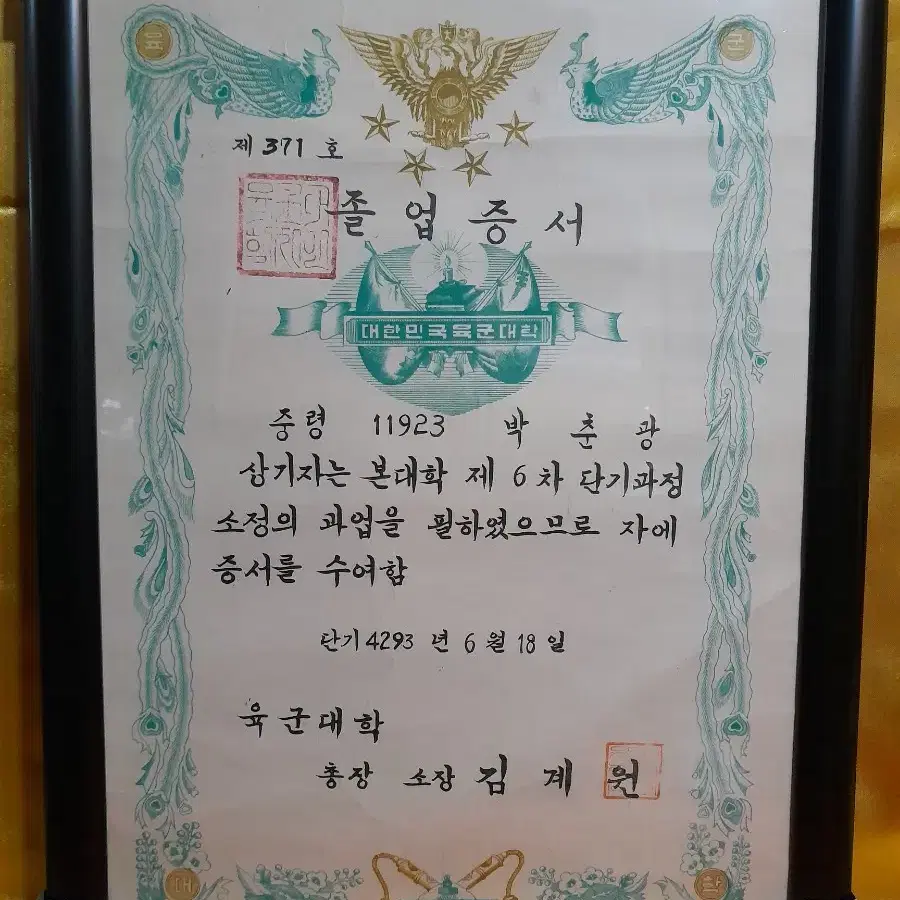 육 군
제 371 호
졸 업 증 서
대한민국육군대학
중령 11923 박 춘 광
상기자는 본대학 제 6 차 단기과정
소정의 과업을 필하였으므로 자에
증서를 수여함
단기 4293 년 6 월 18 일
육군대학
총장 소장 김 계 원
대 학